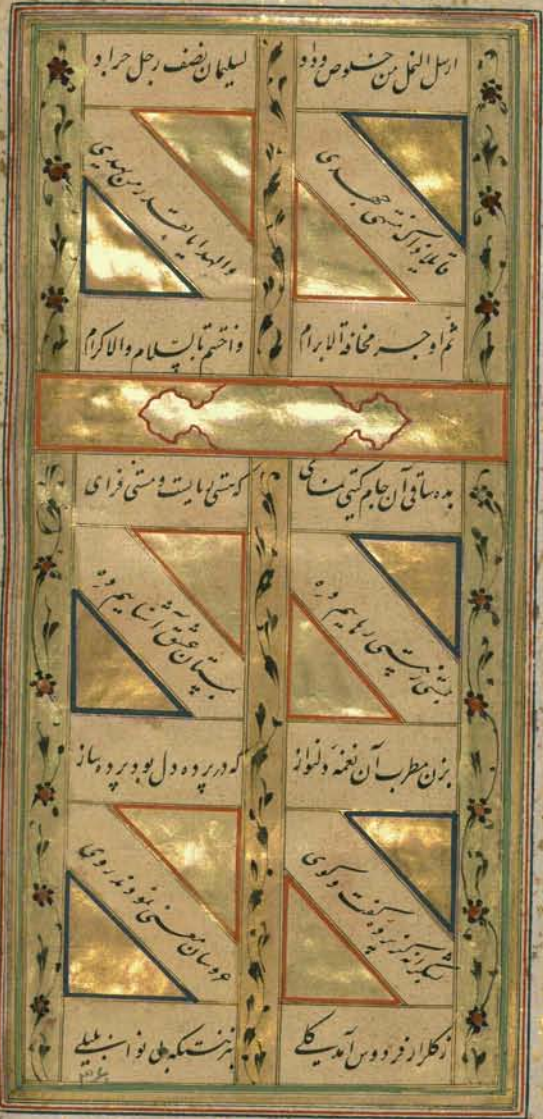 ارسل النمل من خلوص وداد
لسلیمان نصف رجل جراد
قائلا ذاک منتهی جهدی
والهدایا بقدر من یهدی
ثم اوجز مخافة الابرام
واختتم بالسلام والاکرام
بده ساقی آن جام گیتی نمای
که هستی ربایست و مستی فزای
ز هستی رهاییم ده
بمستان عشق آشناییم ده
بزن مطرب آن نغمه دلنواز
که در پرده دل بود پرده ساز
پرده گفت و گوی
عروسان معنی نمودند روی
ز گلزار فردوس آمد گلی
بلبلی